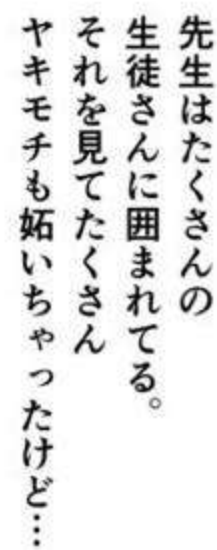 先生はたくさんの
生徒さんに囲まれてる。
それを見てたくさん
ヤキモチも妬いちゃったけど…